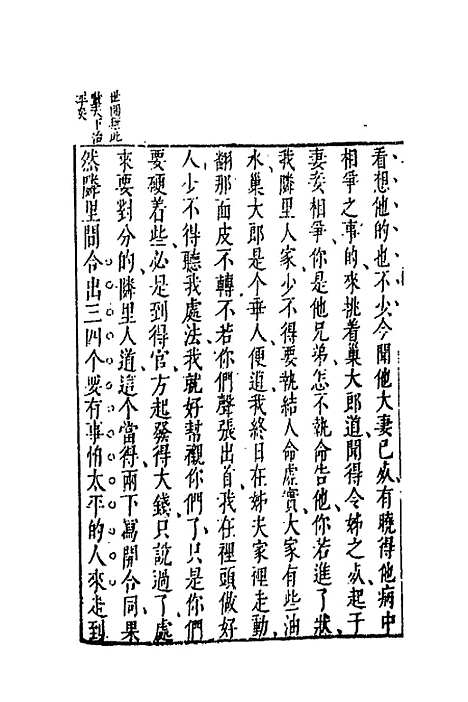 世間無此
輩天下治
平矣
看想他的也不少今聞他大妻已死有曉得他病中
相爭之事的來挑着巢大郎道聞得令姊之死起于
妻妾相爭你是他兄弟怎不執命告他你若進了狀
我隣里人家少不得要執結人命虛實大家有些油
水巢大郎是个乖人便道我終日在姊夫家裡走動
翻那面皮不轉不若你們聲張出首我在裡頭做好
人少不得聽我處法我就好幫襯你們了只是你們
要硬着些必是到得官方起發得大錢只說過了處
來要對分的隣里人道這个當得兩下寫開合同果
然隣里間合出三四个要有事怕太平的人來走到